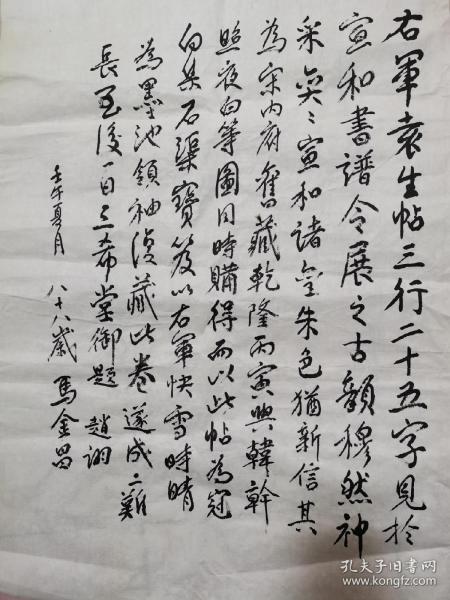 右軍袁生帖三行二十五字見於
宣和書譜今展之古韻穆然神
采奕〻宣和諸璽朱色猶新信其
為宋内府舊藏乾隆丙寅與韓幹
照夜白等圖同時購得而以此帖為冠
向集石渠寶笈以右軍快雪時晴
為墨池領袖復藏此卷遂成二難
長至後一日三希堂御題 趙
壬午夏月 八十八歲 馬金
孔夫子旧书网
www.kongfz.com